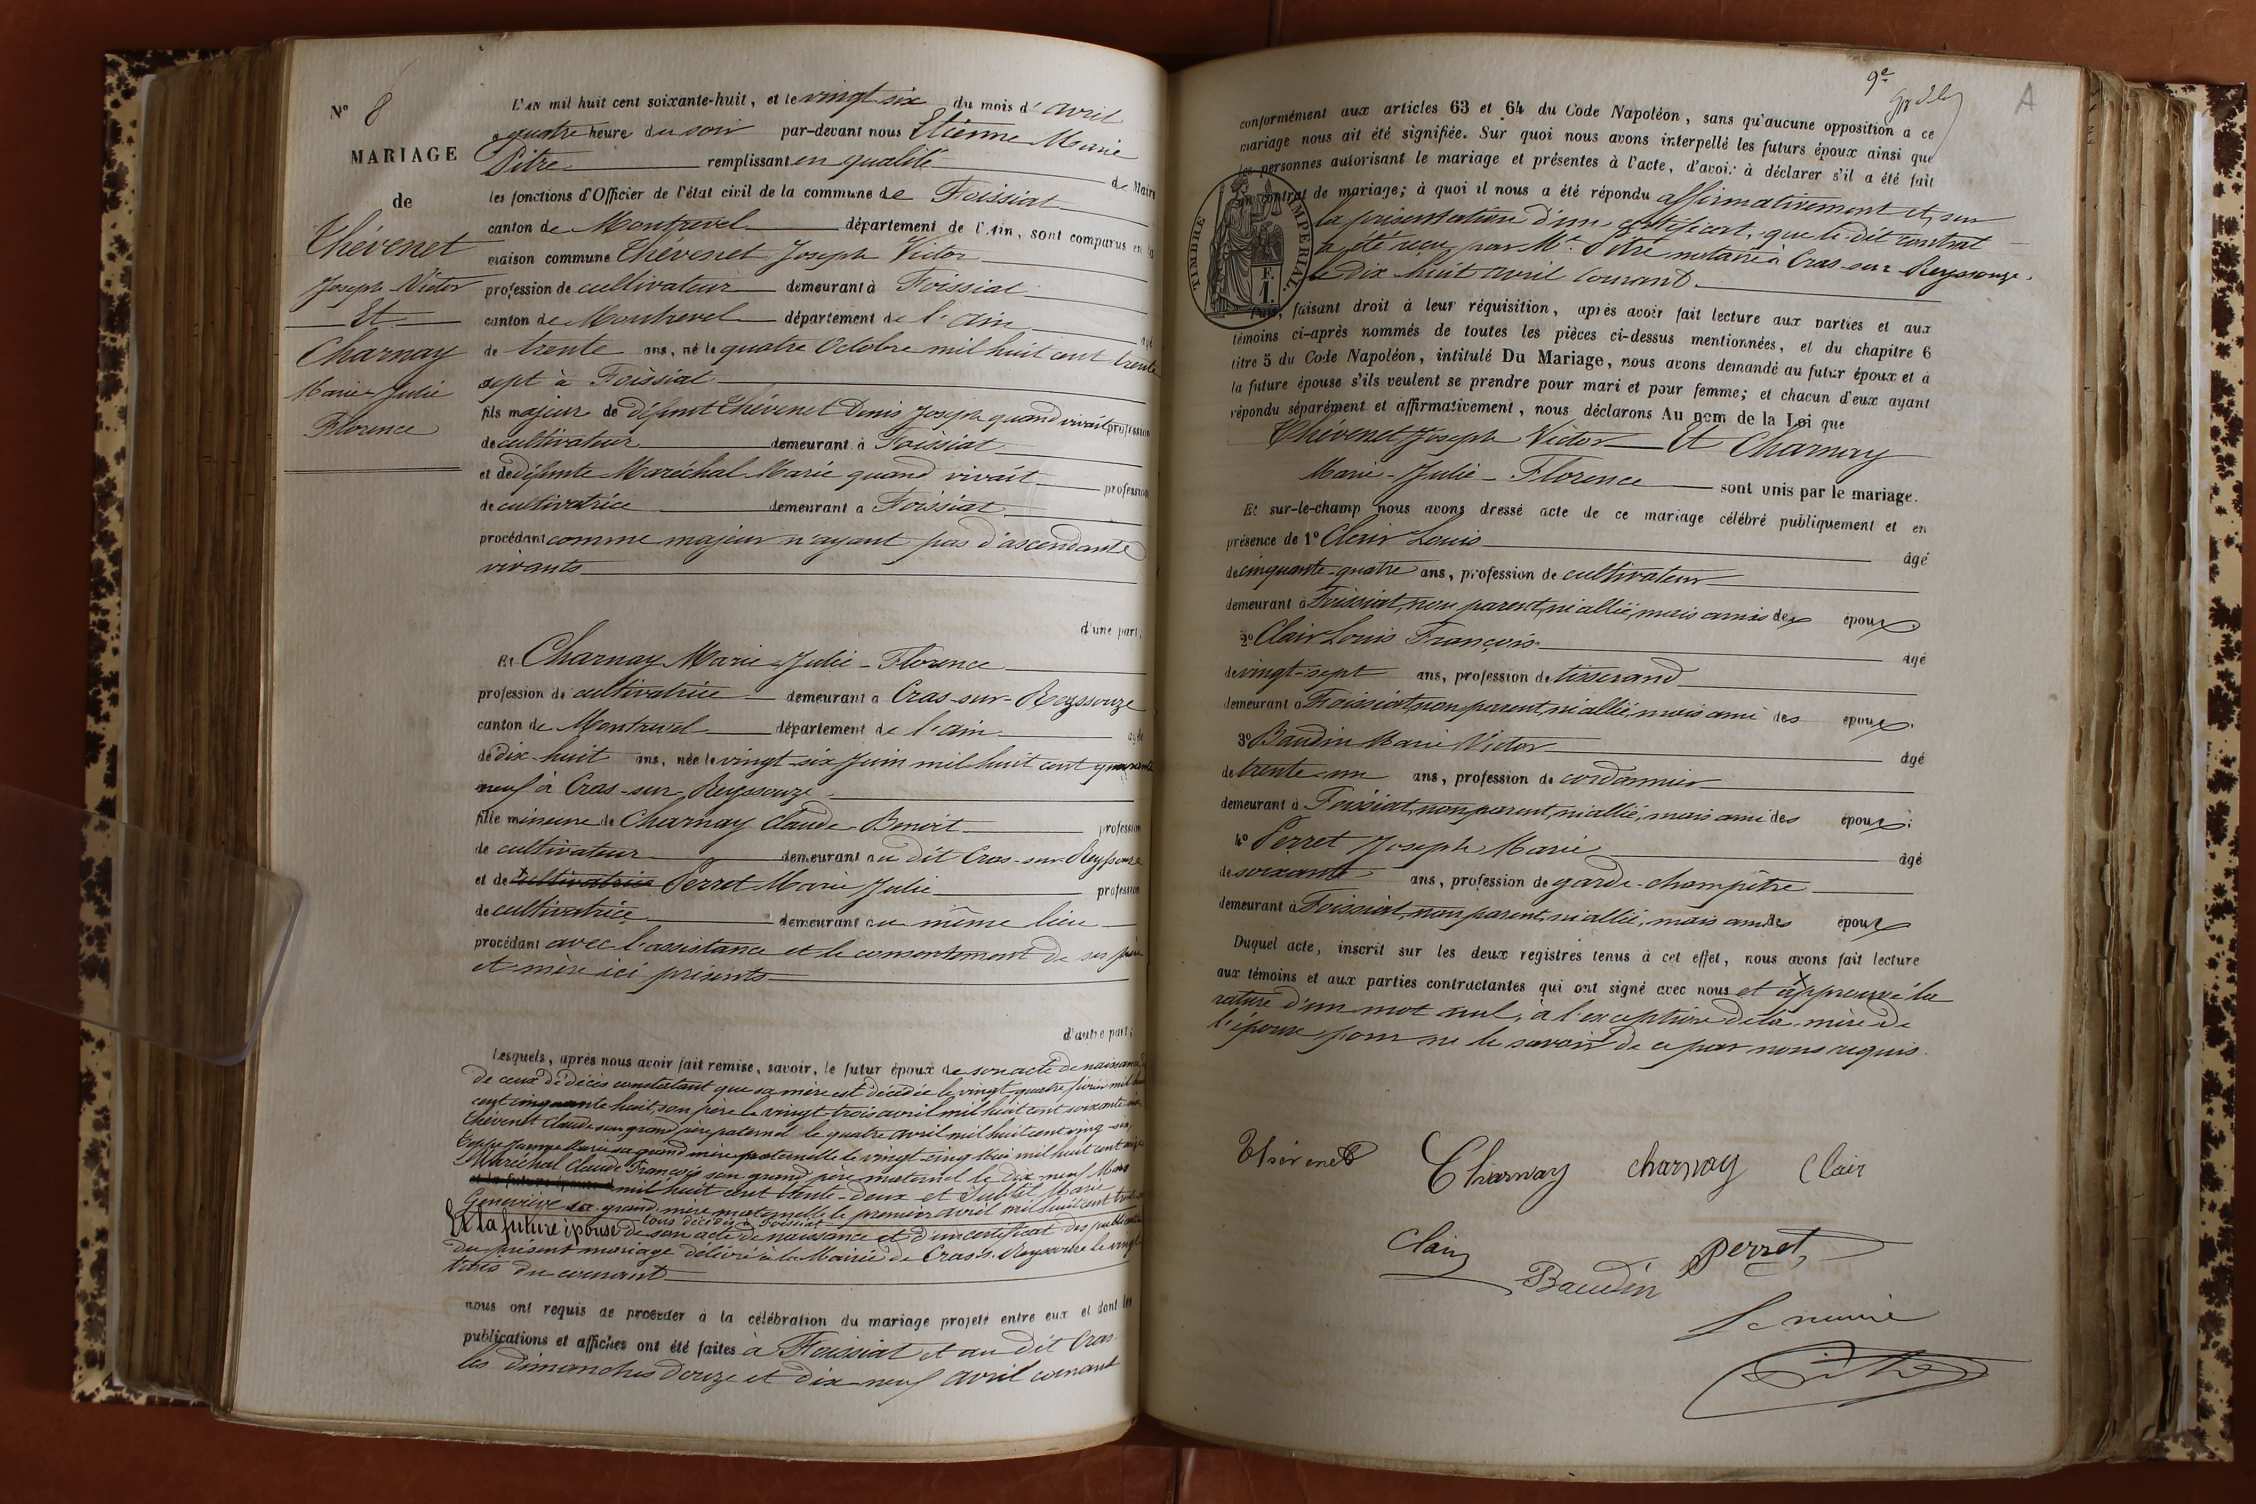 N° 8
MARIAGE
de
Thévenet
Joseph Victor
Et
Charnay
Marie Julie
Florence
L'AN mil huit cent soixante-huit, et le vingt six du mois d'avril
a quatre heure du soir par-devant nous Etienne Marie
Pitre remplissant en qualité de Maire
les fonctions d'Officier de l'état civil de la commune de Foissiat
canton de Montrevel département de l'Ain, sont comparus en la
maison commune Thévenet Joseph Victor
profession de cultivateur demeurant à Foissiat
canton de Montrevel département de l'ain agé
de trente ans, né le quatre Octobre mil huit cent trente
sept à Foissiat
fils majeur de défunt Thévenet Denis Joseph quand vivait profession
de cultivateur demeurant à Foissiat
et de défunte Maréchal Marie quand vivait profession
de cultivatrice demeurant a Foissiat
procédant comme majeur n'ayant pas d'ascendants
vivants
d'une part,
Et Charnay Marie Julie - Florence
profession de cultivatrice demeurant a Cras-sur-Reyssouze
canton de Montrevel département de l'ain agée
de dix-huit ans, née le vingt-six Juin mil huit cent quarante
neuf à Cras-sur-Reyssouze
fille mineure de Charnay Claude Benoit profession
de cultivateur demeurant au dit Cras-sur-Reyssouze
et de cultivatrice Perret Marie Julie profession
de cultivatrice demeurant au même lieu
procédant avec l'assistance et le consentement de ses père
et mère ici présents
d'autre part;
Lesquels, après nous avoir fait remise, savoir, le futur époux de son acte de naissance,
de ceux de décès constatant que sa mère est décédée le vingt-quatre février mil huit
cent cinquante huit, son père le vingt trois avril mil huit cent soixante
Thévenet Claude son grand père paternel le quatre avril mil huit cent vingt-six,
Marie sa grand mère paternelle le vingt-cinq mil huit cent
Maréchal Claude François son grand père maternel le dix-neuf Mars
mil huit cent trente-deux et Subtil Marie
Geneviève sa grand mère maternelle le premier avril mil huit cent
tous décédés à Foissiat
Et la future épouse de son acte de naissance et d'un certificat des publications
du présent mariage délivré à la Mairie de Cras s. Reyssouze le vingt
trois du courant
nous ont requis de procéder à la célébration du mariage projeté entre eux et dont les
publications et affiches ont été faites à Foissiat et au dit Cras
les dimanches douze et dix-neuf avril courant
9e
A
conformément aux articles 63 et 64 du Code Napoléon, sans qu'aucune opposition a ce
mariage nous ait été signifiée. Sur quoi nous avons interpellé les futurs époux ainsi que
les personnes autorisant le mariage et présentes à l'acte, d'avoir à déclarer s'il a été fait
un contrat de mariage; à quoi il nous a été répondu affirmativement et, sur
la présentation d'un certificat, que le dit contrat
a été reçu par Mt. Pitre notaire à Cras-sur-Reyssouze
le dix huit avril courant.
TIMBRE IMPERIAL.
F.
1.
Puis, faisant droit à leur réquisition, après avoir fait lecture aux parties et aux
témoins ci-après nommés de toutes les pièces ci-dessus mentionnées, et du chapitre 6
titre 5 du Code Napoléon, intitulé Du Mariage, nous avons demandé au futur époux et à
la future épouse s'ils veulent se prendre pour mari et pour femme; et chacun d'eux ayant
répondu séparément et affirmativement, nous déclarons Au nom de la Loi que
Thévenet Joseph Victor Et Charnay
Marie-Julie-Florence sont unis par le mariage.
Et sur-le-champ nous avons dressé acte de ce mariage célébré publiquement et en
présence de 1° Clair Louis âgé
de cinquante-quatre ans, profession de cultivateur
demeurant à Foissiat, non parent, ni allié, mais amis des époux.
2° Clair Louis François âgé
de vingt-sept ans, profession de tisserand
demeurant à Foissiat, non parent, ni allié, mais ami des époux.
3° Baudin Marie Victor âgé
de trente-un ans, profession de cordonnier
demeurant à Foissiat, non parent, ni allié, mais ami des époux;
4° Perret Joseph Marie âgé
de soixante ans, profession de garde-champêtre
demeurant à Foissiat, non parent, ni allié, mais ami des époux
Duquel acte, inscrit sur les deux registres tenus à cet effet, nous avons fait lecture
aux témoins et aux parties contractantes qui ont signé avec nous et approuvé la
rature d'un mot nul, à l'exception de la mère de
l'épouse pour ne le savoir de ce par nous requis.
Thévenet Charnay charnay Clair
Clair Baudin perret
Le maire
Pitre